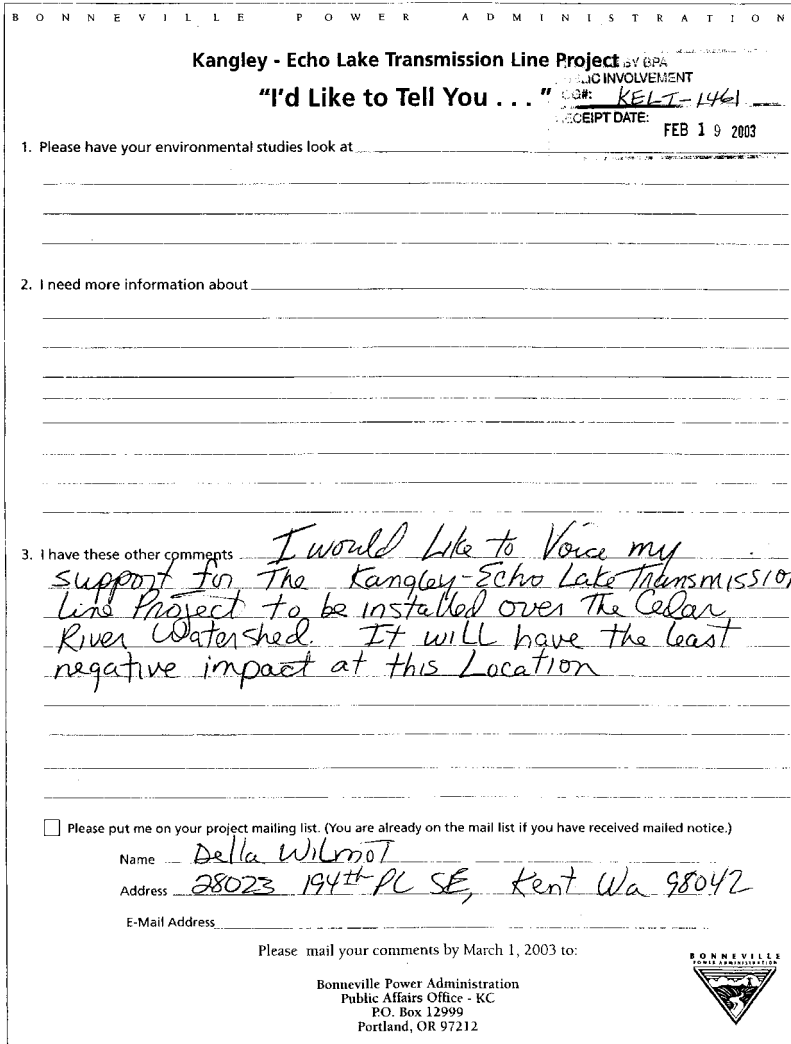 BONNEVILLE POWER ADMINISTRATION
Kangley - Echo Lake Transmission Line Project
"I'd Like to Tell You . . . "
BY BPA
INVOLVEMENT
KELT-1461
RECEIPT DATE:
FEB 19 2003
1. Please have your environmental studies look at
2. I need more information about
3. I have these other comments I would Like to Voice my
support for The Kangley-Echo Lake Transmission
Line Project to be installed over The Cedar
River Watershed. It will have the least
negative impact at this Location
Please put me on your project mailing list. (You are already on the mail list if you have received mailed notice.)
Name Della Wilmot
Address 28023 194th PL SE, Kent Wa 98042
E-Mail Address
Please mail your comments by March 1, 2003 to:
Bonneville Power Administration
Public Affairs Office - KC
P.O. Box 12999
Portland, OR 97212
BONNEVILLE
POWER ADMINISTRATION